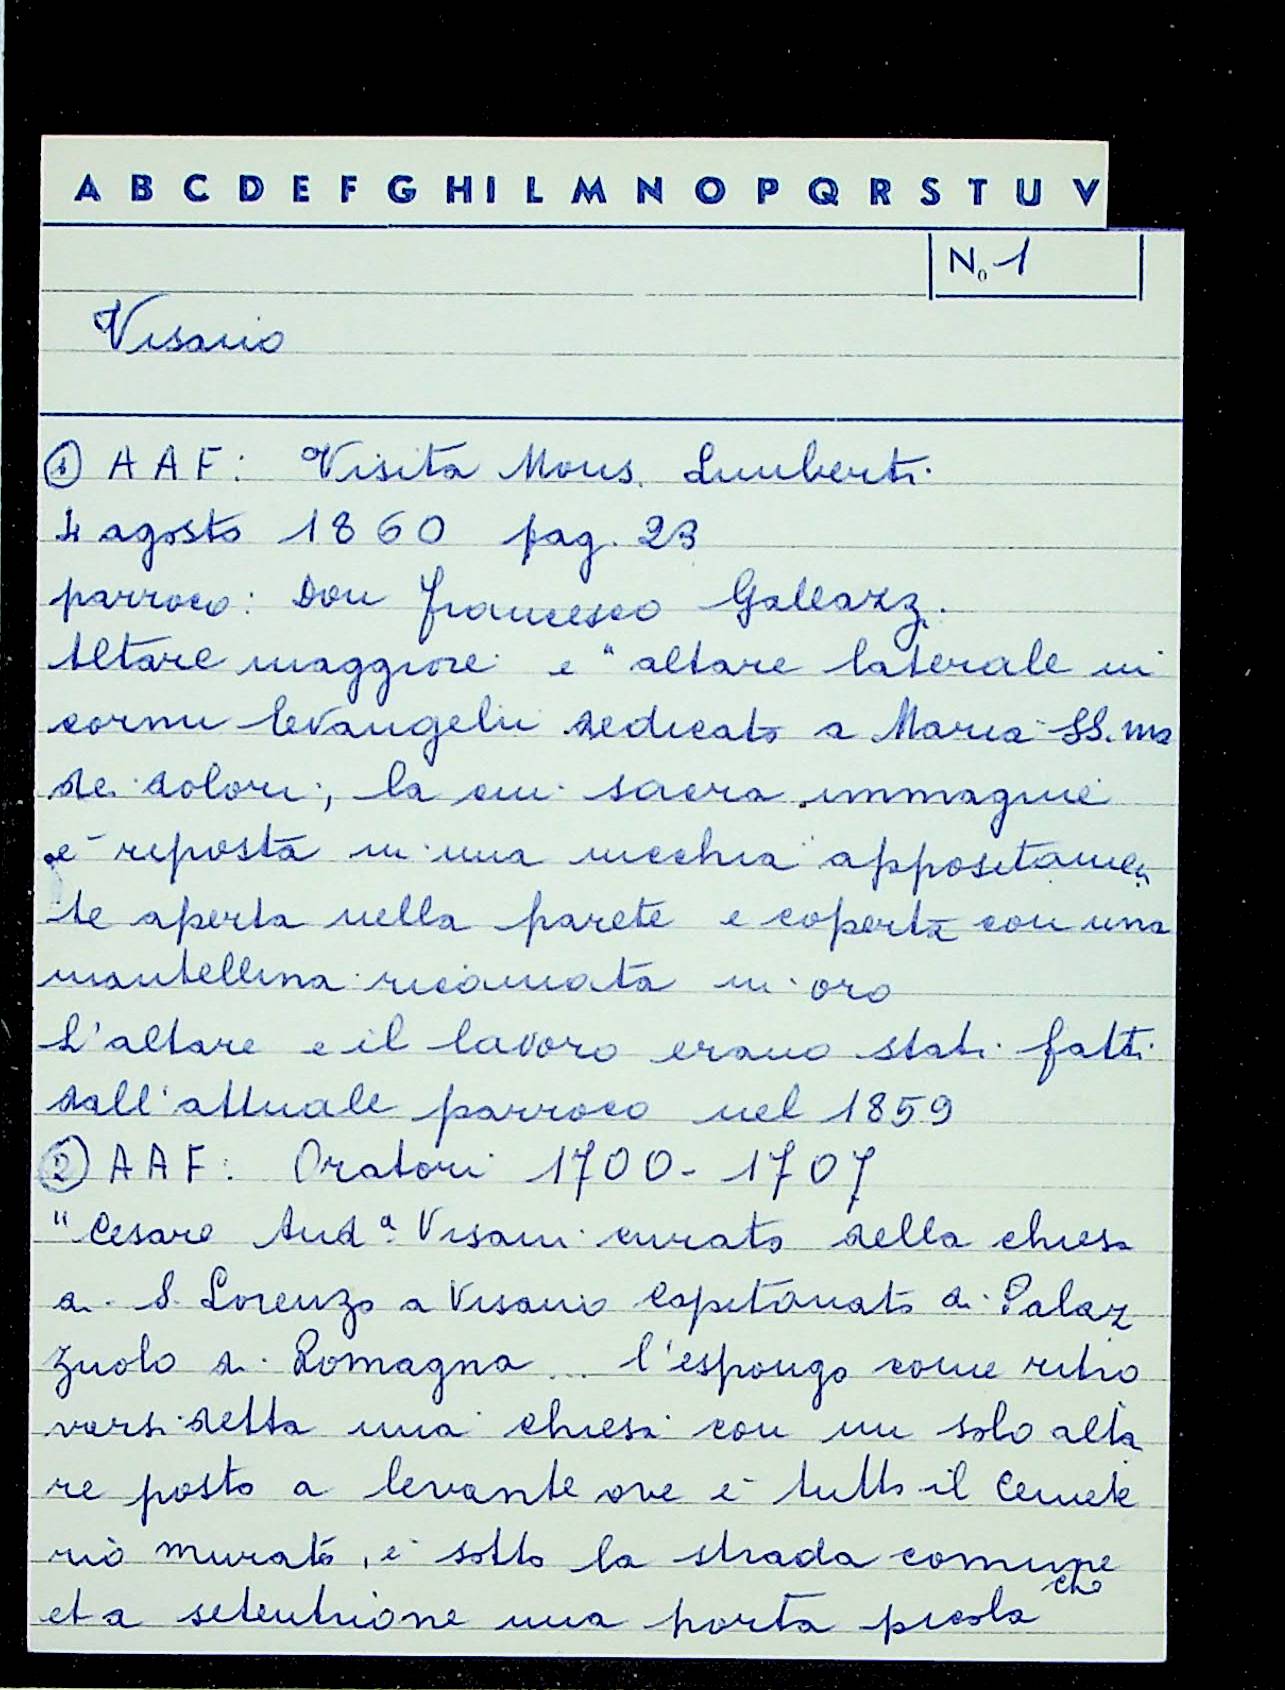 A B C D E F G H I L M N O P Q R S T U V
No 1
Visano
① AAF: Visita Mons. Limberti
4 agosto 1860 pag. 23
parroco: Don Francesco Galeazzi
Altare maggiore e "altare laterale in
cornu Evangelii dedicato a Maria SS.ma
dei dolori, la cui sacra immagine
è riposta in una nicchia appositamen
te aperta nella parete e coperta con una
mantellina ricamata in oro
L'altare e il lavoro erano stati fatti
dall'attuale parroco nel 1859
② AAF: Oratori 1700-1707
"Cesare And.a Visani curato della chiesa
di S. Lorenzo a Visano Capitanato di Palaz
zuolo di Romagna... l'espongo come ritro
varsi detta una chiesa con un solo alta
re posto a levante ove è tutto il Cemete
rio murato, e sotto la strada comune
et a setentrione una porta picola che